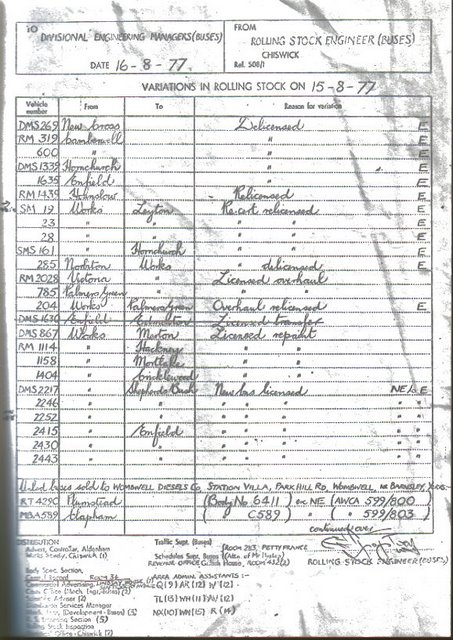 TO
DIVISIONAL ENGINEERING MANAGERS (BUSES)
DATE 16-8-77
FROM
ROLLING STOCK ENGINEER (BUSES)
CHISWICK
Ref. 508/1
VARIATIONS IN ROLLING STOCK ON 15-8-77
Vehicle number From To Reason for variation
DMS 269 New Cross Delicensed E
RM 319 Camberwell " E
600 " " E
DMS 1339 Hornchurch " E
1635 Enfield " E
RM 1439 Hounslow Relicensed E
SM 19 Works Leyton Re cert relicensed E
23 " " " " E
28 " " " " E
SMS 161 " Hornchurch " " E
285 Norbiton Works " delicensed E
RM 2028 Victoria " Licensed overhaul
785 Palmers Green " " "
204 Works Palmers Green Overhaul relicensed E
DMS 1630 Enfield Edmonton Licensed transfer
DMS 867 Works Merton Licensed repaint
RM 1114 " Hackney " "
1158 " Mortlake " "
1404 " Cricklewood " "
DMS 2217 " Shepherds Bush New bus licensed NE/& E
2246 " " " " " " "
2252 " " " " " " "
2415 " Enfield " " " " "
2430 " " " " " " "
2443 " " " " " " "
buses sold to WOMBWELL DIESELS Co, STATION VILLA, PARK HILL RD, WOMBWELL, NR BARNSLEY, YORKS:-
RT 4290 Plumstead (Body No 6411) NE (AWCA 599/800)
MBA 589 Clapham ( C589 ) " " 599/803)
continued over
ROLLING STOCK ENGINEER (BUSES)
DISTRIBUTION
Advert. Controller, Aldenham
Works Studio, Chiswick (1)
Body Spec. Section,
Traffic Supt. (Buses)
Schedules Supt. Buses
(ROOM 283, PETTY FRANCE
AREA ADMIN. ASSISTANTS :-
Services Manager